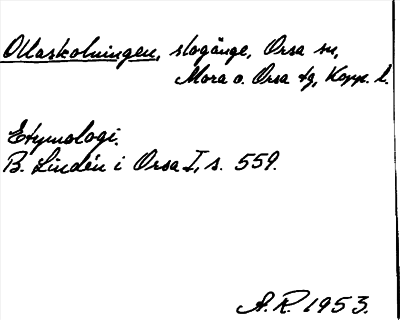 Ollaskolningen, slogänge, Orsa sn,
Mora o. Orsa tg, Kopp. l.
Etymologi.
B. Lindén i Orsa I, s. 559.
A. R. 1953.